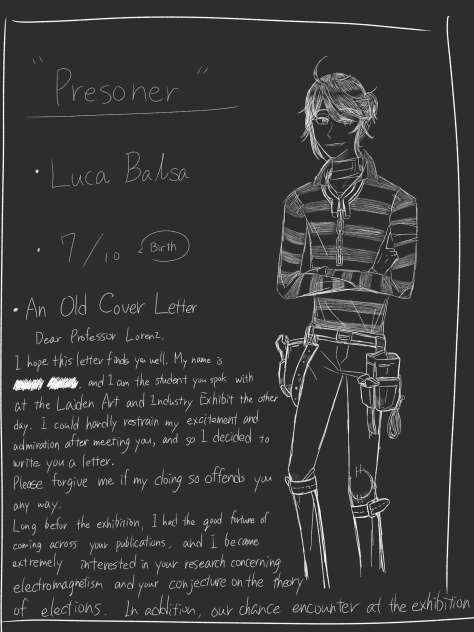 "Presoner"
• Luca Balsa
• 7/10 Birth
• An Old Cover Letter
Dear Professor Lorenz,
I hope this letter finds you well. My name is
, and I am the student you spok with
at the Laiden Art and Industry Exhibit the other
day. I could hardly restrain my excitement and
admiration after meeting you, and so I decided to
write you a letter.
Please forgive me if my doing so offends you
any way.
Long befor the exhibition, I had the good fortune of
coming across your publications, and I became
extremely interested in your research concerning
electromagnetism and your conjecture on the theory
of elections. In addition, our chance encounter at the exhibition